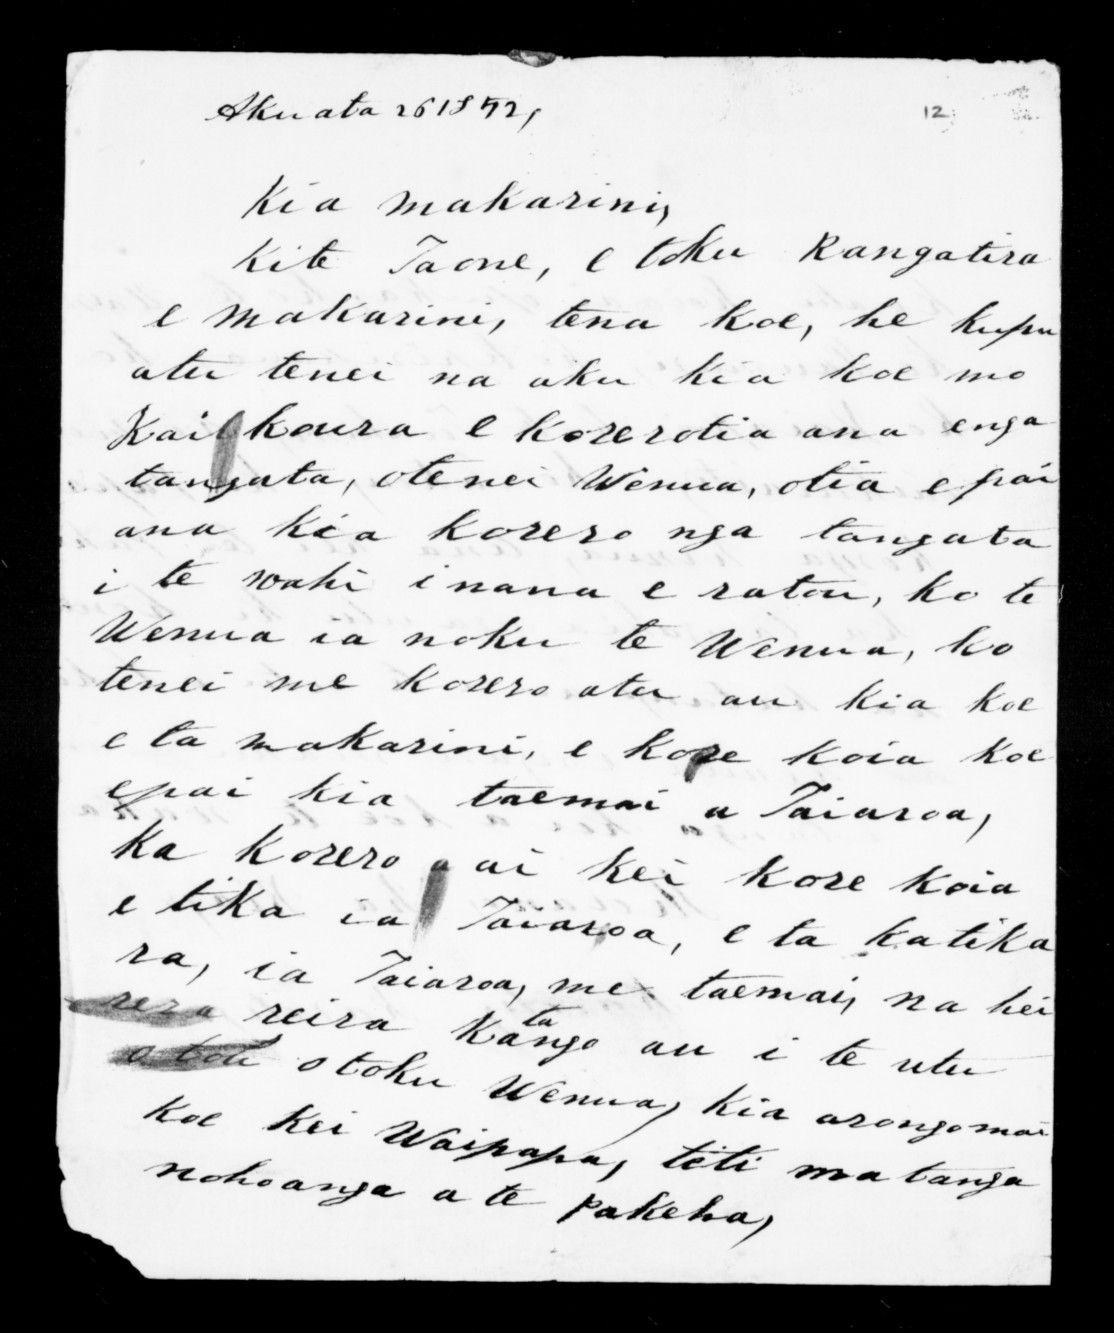 Akuata 26 1852,
12
Kia makarini,
Kite Taone, e toku Rangatira
e makarini, tena koe, he kupu
atu tenei na aku kia koe mo
Kaikoura e korerotia ana enga
tangata, otenei Wenua, otia e pai
ana kia korero nga tangata
i te wahi inana e ratou, ko te
Wenua ia noku te Wenua, ko
tenei me korero atu au kia koe
e ta makarini, e kore koia koe
epai kia taemai a Taiaroa,
ka korero ai kei kore koia
e tika ia Taiaroa, e ta katika
ra, ia Taiaroa, me taemai, na hei
reira Katango au i te utu
otoku Wenua, kia arongomai
koe kei Waipapa, teti matanga
nohoanga a te pakeha,